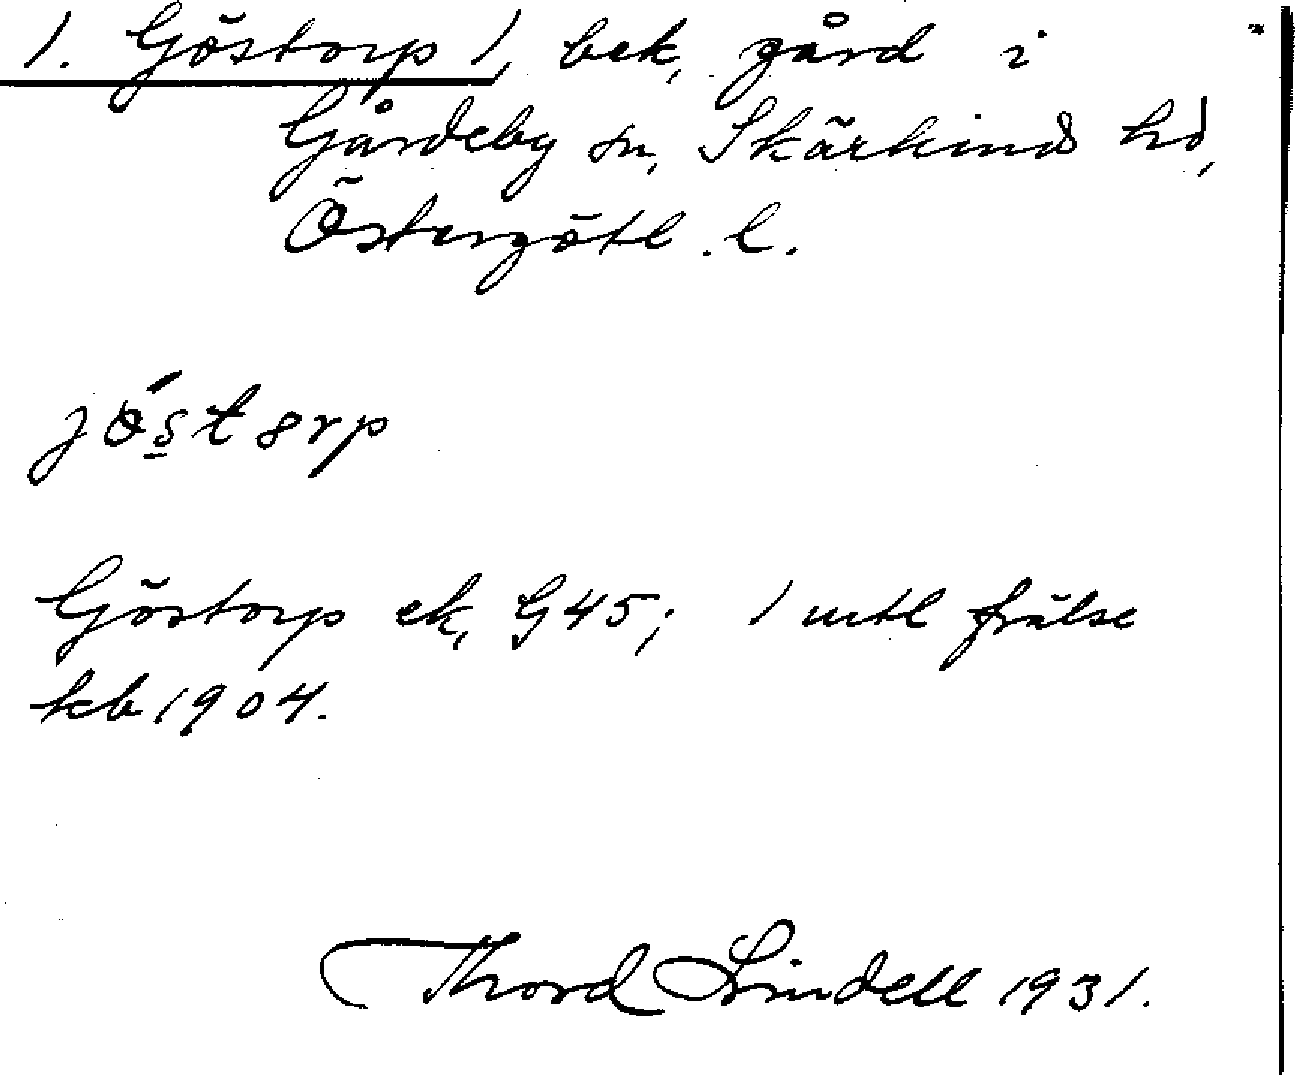 1. Göstorp 1, bek. gård i
Gårdeby sn, Skärkind hd,
Östergötl. l.
jöstorp
Göstorp ek, G45; 1 mtl frälse
kb 1904.
Thord Lindell 1931.